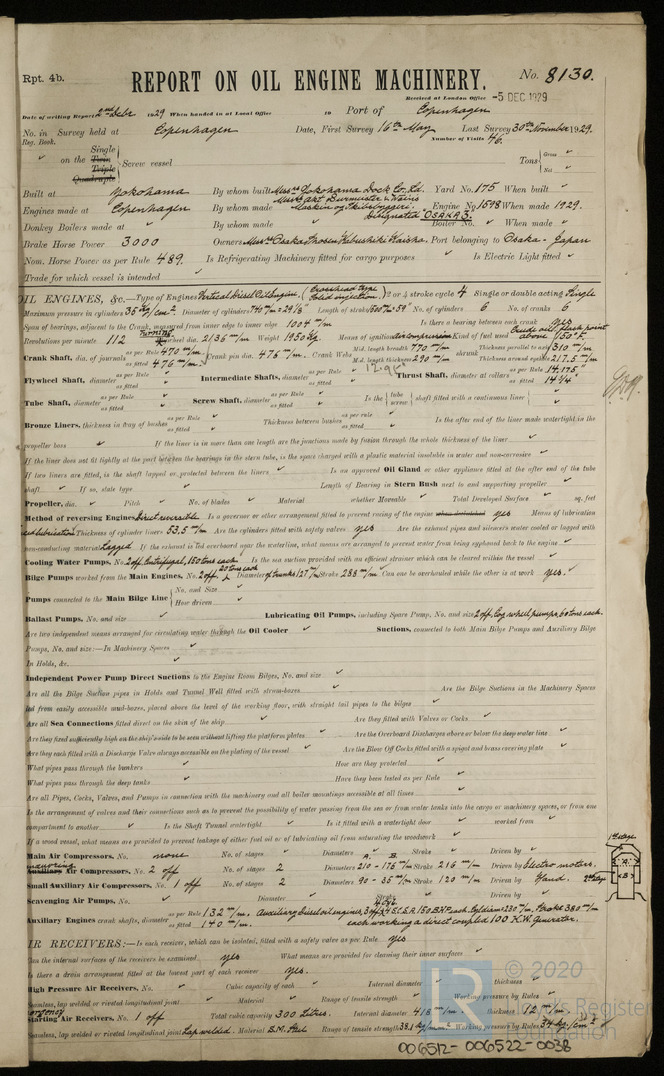 Rpt. 4b.
REPORT ON OIL ENGINE MACHINERY.
No. 8130.
Received at London Office -5 DEC 1929
Date of writing Report 2nd Decbr 1929 When handed in at Local Office 19 Port of Copenhagen
No. in Survey held at Copenhagen Date, First Survey 16th May Last Survey 30th November 1929.
Reg. Book. Number of Visits 46.
Single
on the Twin Screw vessel Tons Gross
Triple Net
Quadruple
Built at Yokohama By whom built Messrs Yokohama Dock Co. Ld. Yard No. 175 When built
Engines made at Copenhagen By whom made Messrs Akt. Burmeister & Wain's Maskin og Skibsbyggeri Engine No. 1598 When made 1929.
Designated "OSAKA 3"
Donkey Boilers made at By whom made Boiler No. When made
Brake Horse Power 3000 Owners Messrs Osaka Shosen Kabushiki Kaisha. Port belonging to Osaka - Japan
Nom. Horse Power as per Rule 489. Is Refrigerating Machinery fitted for cargo purposes Is Electric Light fitted
Trade for which vessel is intended
OIL ENGINES, &c.—Type of Engines Vertical Diesel Oil Engine. (Crosshead type Solid injection.) 2 or 4 stroke cycle 4 Single or double acting Single
Maximum pressure in cylinders 35 kg/cm². Diameter of cylinders 740 m/m = 29 1/8" Length of stroke 1500 m/m = 59" No. of cylinders 6 No. of cranks 6
Span of bearings, adjacent to the Crank, measured from inner edge to inner edge 1004 m/m Is there a bearing between each crank yes
Revolutions per minute 112 Turning wheel dia. 2136 m/m Weight 1950 kg. Means of ignition Air compression Kind of fuel used Crude oil, flash point above 150° F.
Crank Shaft, dia. of journals as per Rule 470 m/m as fitted 476 m/m. Crank pin dia. 476 m/m. Crank Webs Mid. length breadth 770 m/m Mid. length thickness 290 m/m shrunk Thickness parallel to axis 310 m/m Thickness around eyehole 217.5 m/m
Flywheel Shaft, diameter as per Rule as fitted Intermediate Shafts, diameter as per Rule as fitted Thrust Shaft, diameter at collars as per Rule 14.175" as fitted 14 1/4"
Tube Shaft, diameter as per Rule as fitted Screw Shaft, diameter as per Rule as fitted Is the tube screw shaft fitted with a continuous liner
Bronze Liners, thickness in way of bushes as per Rule as fitted Thickness between bushes as per rule as fitted Is the after end of the liner made watertight in the
propeller boss If the liner is in more than one length are the junctions made by fusion through the whole thickness of the liner
If the liner does not fit tightly at the part between the bearings in the stern tube, is the space charged with a plastic material insoluble in water and non-corrosive
If two liners are fitted, is the shaft lapped or protected between the liners Is an approved Oil Gland or other appliance fitted at the after end of the tube
shaft If so, state type Length of Bearing in Stern Bush next to and supporting propeller
Propeller, dia. Pitch No. of blades Material whether Moveable Total Developed Surface sq. feet
Method of reversing Engines Direct reversible Is a governor or other arrangement fitted to prevent racing of the engine when declutched yes Means of lubrication
forced lubrication Thickness of cylinder liners 53,5 m/m Are the cylinders fitted with safety valves yes Are the exhaust pipes and silencers water cooled or lagged with
non-conducting material Lagged If the exhaust is led overboard near the waterline, what means are arranged to prevent water from being syphoned back to the engine
Cooling Water Pumps, No. 2 off, Centrifugal, 150 tons each Is the sea suction provided with an efficient strainer which can be cleared within the vessel
Bilge Pumps worked from the Main Engines, No. 2 off, 20 tons each Diameter of trunks 127 m/m Stroke 288 m/m Can one be overhauled while the other is at work yes.
Pumps connected to the Main Bilge Line No. and Size
How driven
Ballast Pumps, No. and size Lubricating Oil Pumps, including Spare Pump, No. and size 2 off, Cog wheel pumps, 60 tons each.
Are two independent means arranged for circulating water through the Oil Cooler Suctions, connected to both Main Bilge Pumps and Auxiliary Bilge
Pumps, No. and size:—In Machinery Spaces
In Holds, &c.
Independent Power Pump Direct Suctions to the Engine Room Bilges, No. and size
Are all the Bilge Suction pipes in Holds and Tunnel Well fitted with strum-boxes Are the Bilge Suctions in the Machinery Spaces
led from easily accessible mud-boxes, placed above the level of the working floor, with straight tail pipes to the bilges
Are all Sea Connections fitted direct on the skin of the ship Are they fitted with Valves or Cocks
Are they fixed sufficiently high on the ship's side to be seen without lifting the platform plates Are the Overboard Discharges above or below the deep water line
Are they each fitted with a Discharge Valve always accessible on the plating of the vessel Are the Blow Off Cocks fitted with a spigot and brass covering plate
What pipes pass through the bunkers How are they protected
What pipes pass through the deep tanks Have they been tested as per Rule
Are all Pipes, Cocks, Valves, and Pumps in connection with the machinery and all boiler mountings accessible at all times
Is the arrangement of valves and their connections such as to prevent the possibility of water passing from the sea or from water tanks into the cargo or machinery spaces, or from one
compartment to another Is the Shaft Tunnel watertight Is it fitted with a watertight door worked from
If a wood vessel, what means are provided to prevent leakage of either fuel oil or of lubricating oil from saturating the woodwork
Main Air Compressors, No. none No. of stages Diameters A. B. Stroke Driven by
Auxiliary Air Compressors, No. 2 off No. of stages 2 Diameters 210 - 175 m/m Stroke 216 m/m Driven by Electro motors.
Small Auxiliary Air Compressors, No. 1 off No. of stages 2 Diameters 90 - 35 m/m Stroke 120 m/m Driven by Hand.
Scavenging Air Pumps, No. Diameter Stroke Driven by
Auxiliary Engines crank shafts, diameter as per Rule 132 m/m. as fitted 140 m/m. Auxiliary Diesel oil engines, 150 B.H.P. each. Cyl. diam 230 m/m, Stroke 380 m/m
each working a direct coupled 100 K.W. Generator.
AIR RECEIVERS:—Is each receiver, which can be isolated, fitted with a safety valve as per Rule yes
Can the internal surfaces of the receivers be examined yes What means are provided for cleaning their inner surfaces
Is there a drain arrangement fitted at the lowest part of each receiver yes.
High Pressure Air Receivers, No. Cubic capacity of each Internal diameter thickness
Seamless, lap welded or riveted longitudinal joint Material Range of tensile strength Working pressure by Rules
Starting Air Receivers, No. 1 off Total cubic capacity 300 Litres. Internal diameter 418 m/m. thickness 12 m/m.
Seamless, lap welded or riveted longitudinal joint Lap welded. Material S.M. Steel Range of tensile strength Working pressure by Rules 34 kg/cm²
© 2020
Lloyd's Register
Foundation
006512-006522-0038